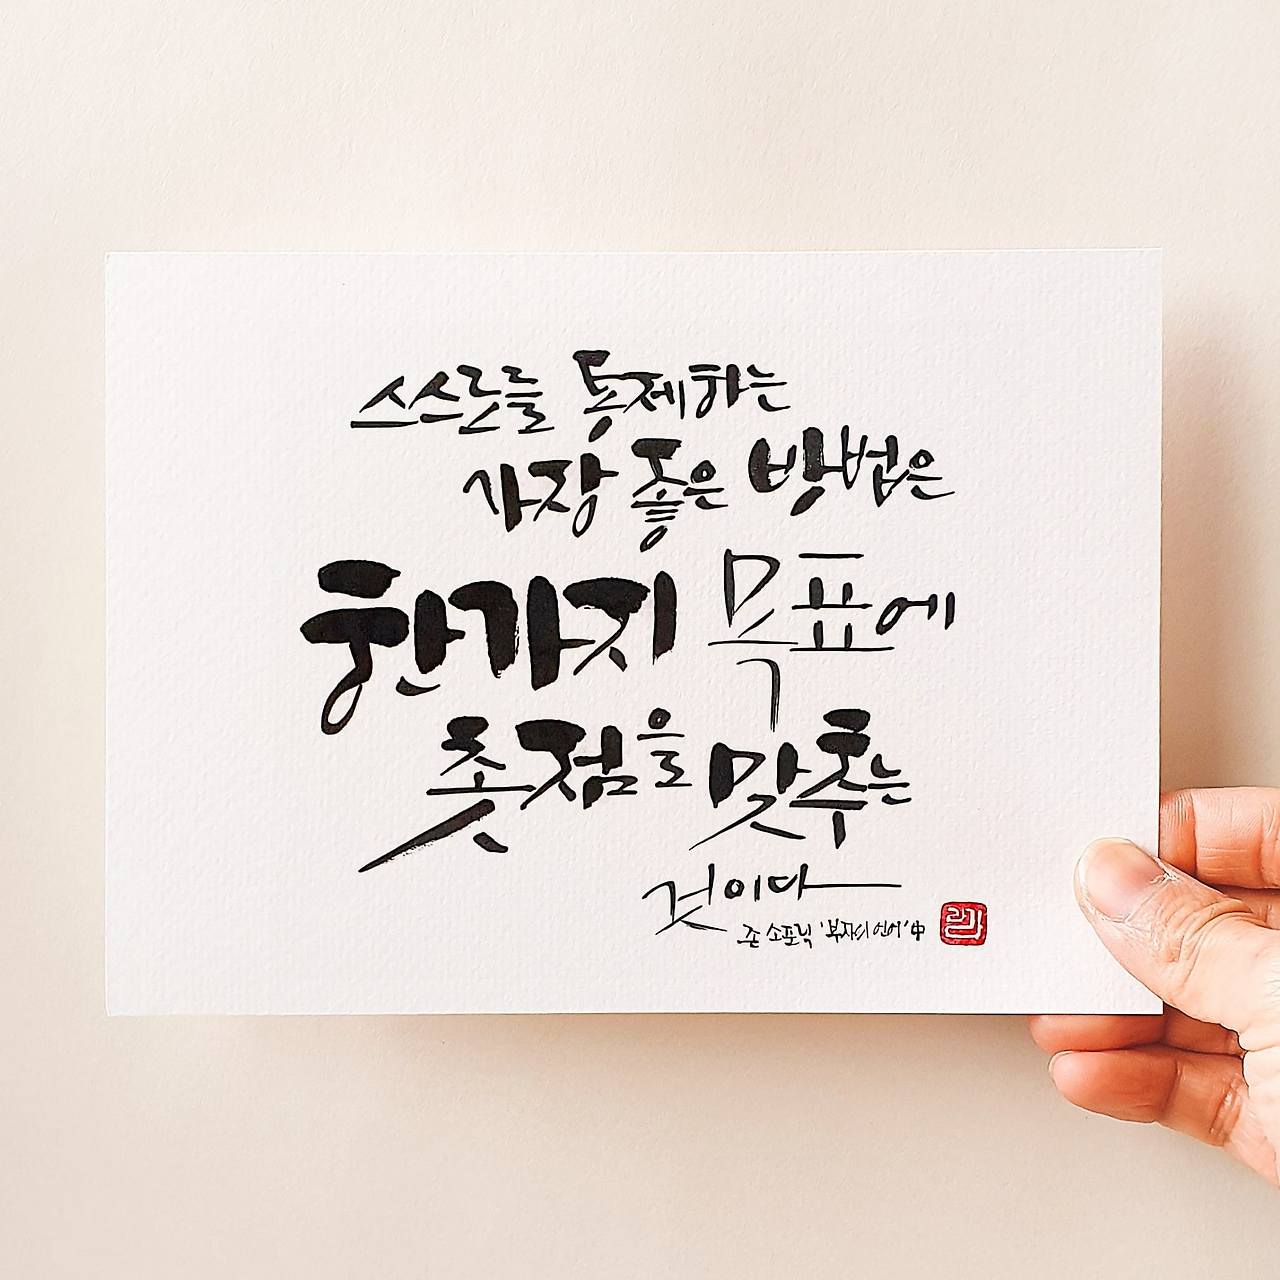 스스로를 통제하는
가장 좋은 방법은
한가지 목표에
촛점을 맞추는
것이다
존 소포닉 '부자의 언어' 中
라라